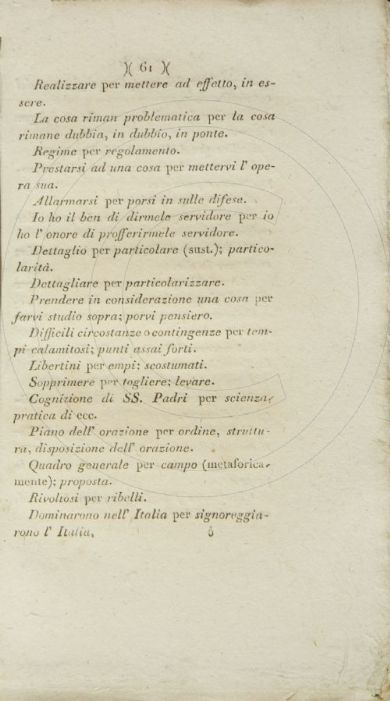 )( 61 )(
Realizzare per mettere ad effetto, in es-
sere.
La cosa riman problematica per la cosa
rimane dubbia, in dubbio, in ponte.
Regime per regolamento.
Prestarsi ad una cosa per mettervi l' ope-
ra sua.
Allarmarsi per porsi in sulle difese.
Io ho il ben di dirmele servidore per io
ho l' onore di profferirmele servidore.
Dettaglio per particolare (sust.); partico-
larità.
Dettagliare per particolarizzare.
Prendere in considerazione una cosa per
farvi studio sopra; porvi pensiero.
Difficili circostanze o contingenze per tem-
pi calamitosi; punti assai forti.
Libertini per empi; scostumati.
Sopprimere per togliere; levare.
Cognizione di SS. Padri per scienza,
pratica di ecc.
Piano dell' orazione per ordine, struttu-
ra, disposizione dell' orazione.
Quadro generale per campo (metaforica-
mente); proposta.
Rivoltosi per ribelli.
Dominarono nell' Italia per signoreggia-
rono l' Italia.